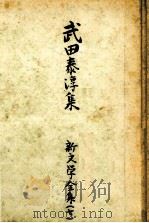 武田泰淳集
新文学全集